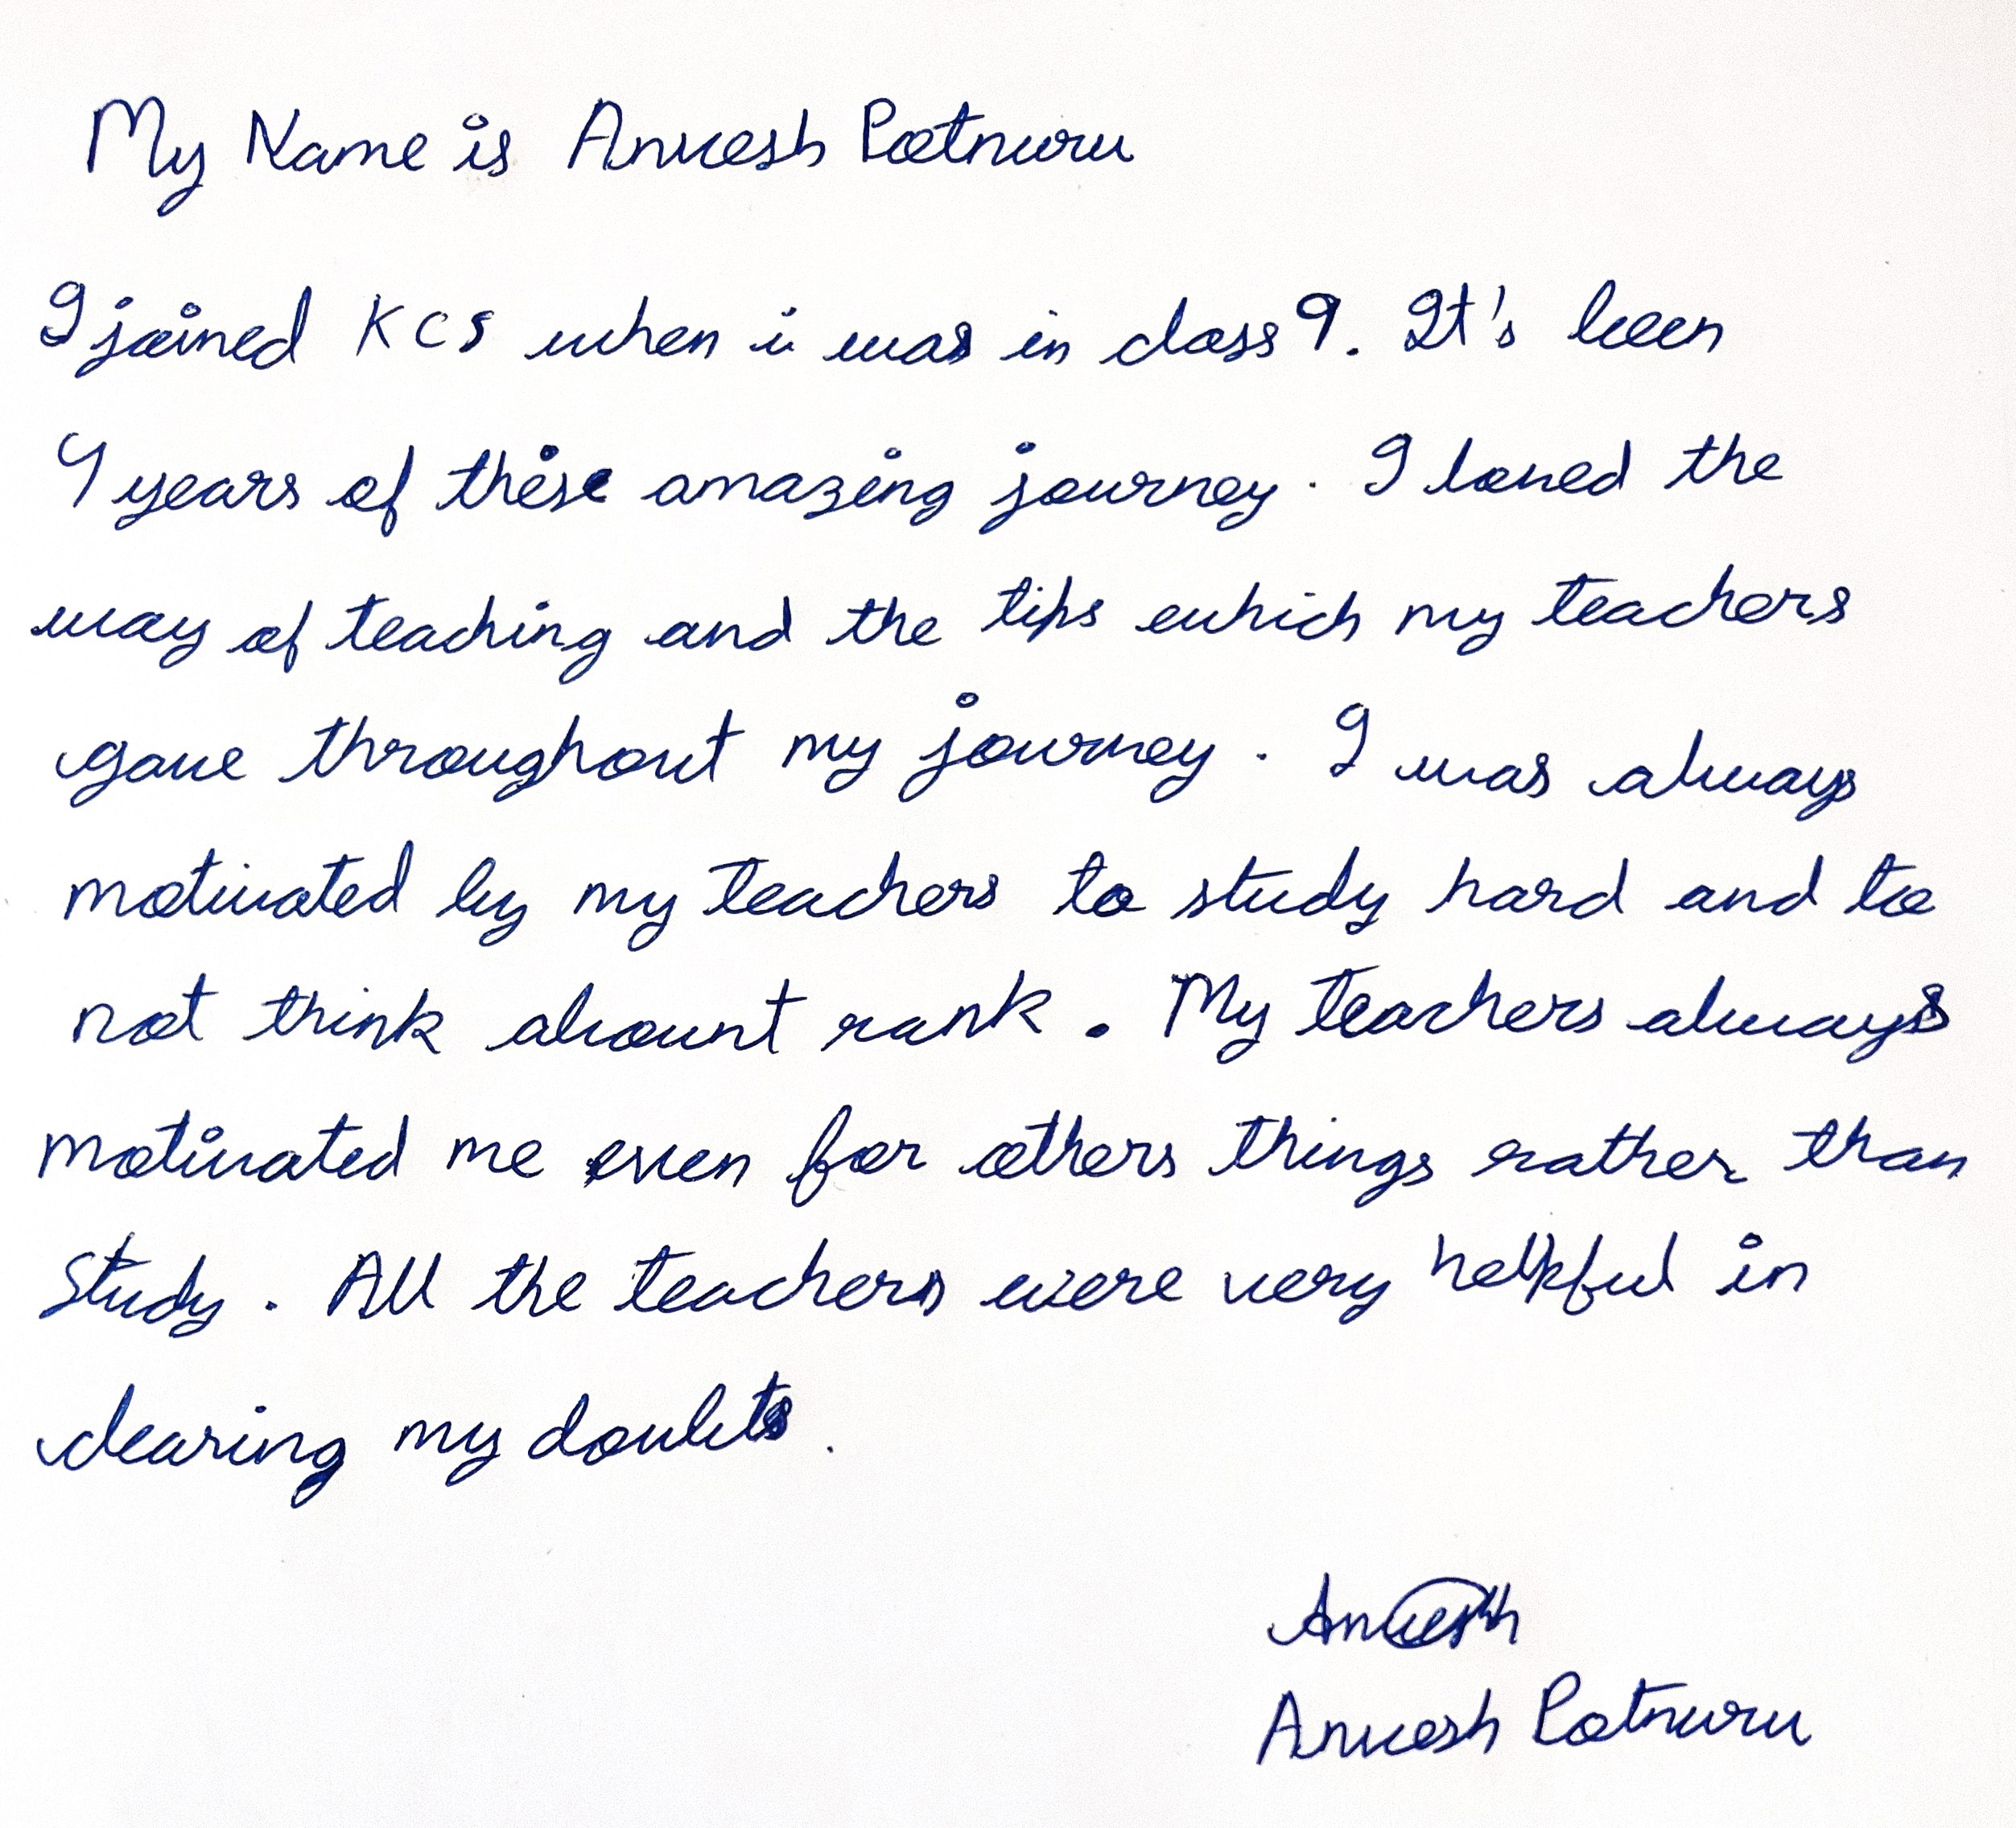 My Name is Anvesh Potnuru
I joined KCS when i was in class 9. It's been
4 years of these amazing journey. I loved the
way of teaching and the tips which my teachers
gave throughout my journey. I was always
motivated by my teachers to study hard and to
not think abount rank. My teachers always
motivated me even for others things rather than
study. All the teachers were very helpful in
clearing my doubts.
Anvesh
Anvesh Potnuru